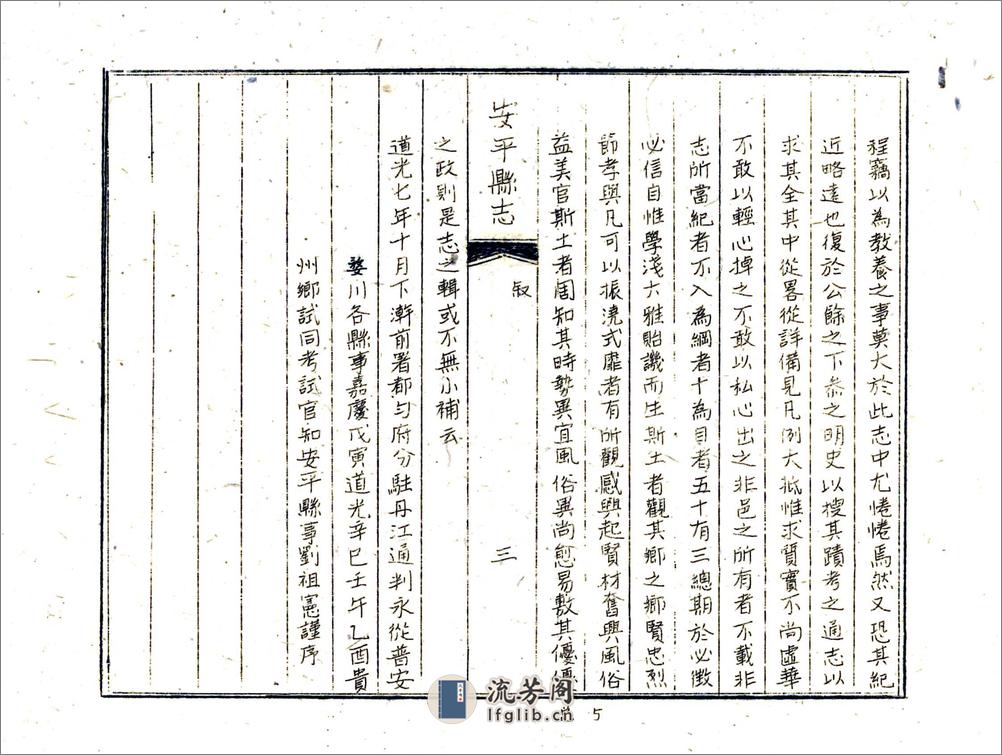 程竊以為教養之事莫大於此志中尤惓惓焉然又恐其紀
近略遠也復於公餘之下叅之明史以搜其蹟考之通志以
求其全其中從畧從詳備見凡例大抵惟求質實不尚虛華
不敢以輕心掉之不敢以私心出之非邑之所有者不載非
志所當紀者不入為綱者十為目者五十有三總期於必徴
必信自惟學淺大雅貽譏而生斯土者觀其鄉之鄉賢忠烈
節孝與凡可以振澆式靡者有所觀感興起賢材奮興風俗
益美官斯土者周知其時勢異宜風俗異尚愈易敷其優優
安平縣志
叙
三
之政則是志之輯或不無小補云
道光七年十月下澣前署都勻府分駐丹江通判永從普安
婺川各縣事嘉慶戊寅道光辛巳壬午乙酉貴
州鄉試同考試官知安平縣事劉祖憲謹序
流芳阁
lfglib.cn
5